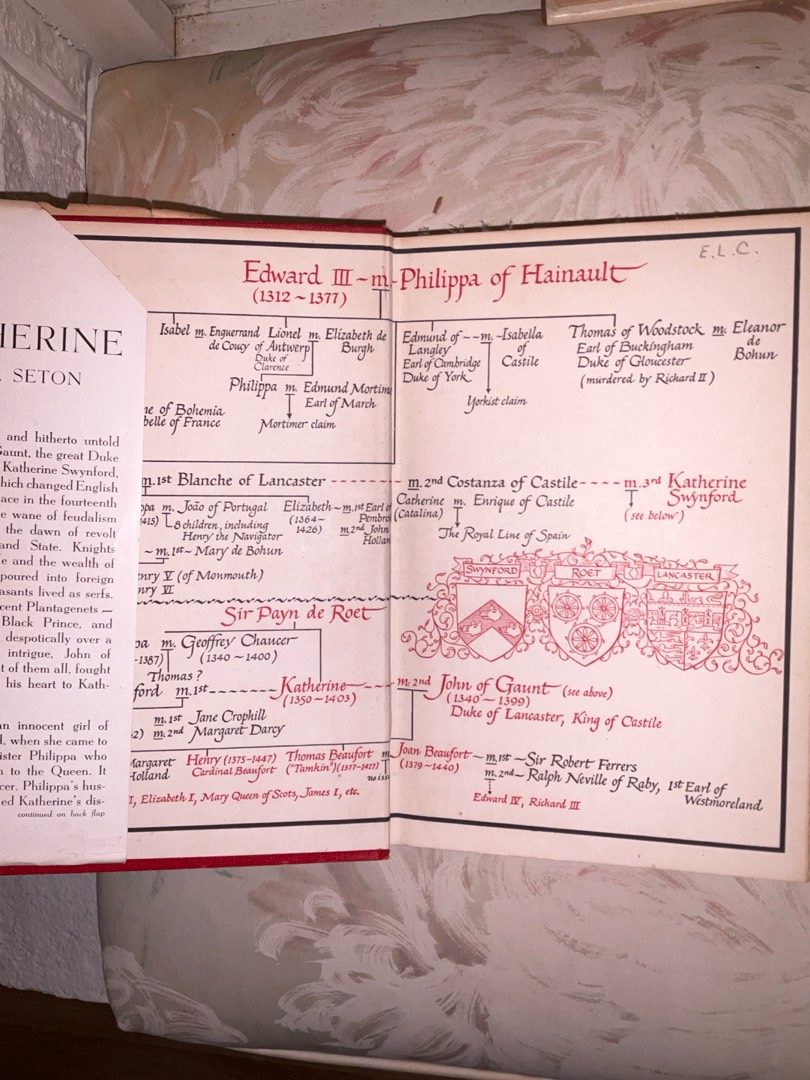 HERINE
SETON
and hitherto untold
Gaunt, the great Duke
Katherine Swynford,
which changed English
ace in the fourteenth
e wane of feudalism
the dawn of revolt
and State. Knights
e and the wealth of
poured into foreign
asants lived as serfs.
cent Plantagenets —
Black Prince, and
despotically over a
intrigue, John of
t of them all, fought
his heart to Kath-
an innocent girl of
, when she came to
ister Philippa who
n to the Queen. It
cer, Philippa's hus-
ed Katherine's dis-
continued on back flap
E.L.C.
Edward III ~ m. Philippa of Hainault
(1312 ~ 1377)
Isabel m. Enguerrand de Coucy
Lionel of Antwerp m. Elizabeth de Burgh
Duke of Clarence
Philippa m. Edmund Mortim
Earl of March
Mortimer claim
ne of Bohemia
belle of France
Edmund of ~~ m. ~ Isabella of Castile
Langley
Earl of Cambridge
Duke of York
Yorkist claim
Thomas of Woodstock m. Eleanor de Bohun
Earl of Buckingham
Duke of Gloucester
(murdered by Richard II)
m. 1st Blanche of Lancaster ------- m. 2nd Costanza of Castile ---- m. 3rd Katherine Swynford
(see below)
ppa m. João of Portugal
1415) 8 children, including
Henry the Navigator
Elizabeth ~ m. 1st Earl of Pembro
(1364~1426) m. 2nd John Hollan
Catherine m. Enrique of Castile
(Catalina)
The Royal Line of Spain
~ m. 1st ~ Mary de Bohun
enry V (of Monmouth)
nry VI
SWYNFORD ROET LANCASTER
Sir Payn de Roet
pa m. Geoffrey Chaucer
-1387) (1340 ~ 1400)
Thomas?
ford m. 1st ------- Katherine ---- m. 2nd John of Gaunt (see above)
(1350 ~ 1403) (1340 ~ 1399)
Duke of Lancaster, King of Castile
m. 1st Jane Crophill
2) m. 2nd Margaret Darcy
Margaret Holland
Henry (1375-1447)
Cardinal Beaufort
Thomas Beaufort m
("Tamkin") (1377-1427)
no iss
Joan Beaufort ~ m. 1st ~ Sir Robert Ferrers
(1379 ~ 1440) m. 2nd ~ Ralph Neville of Raby, 1st Earl of Westmoreland
Edward IV, Richard III
I, Elizabeth I, Mary Queen of Scots, James I, etc.